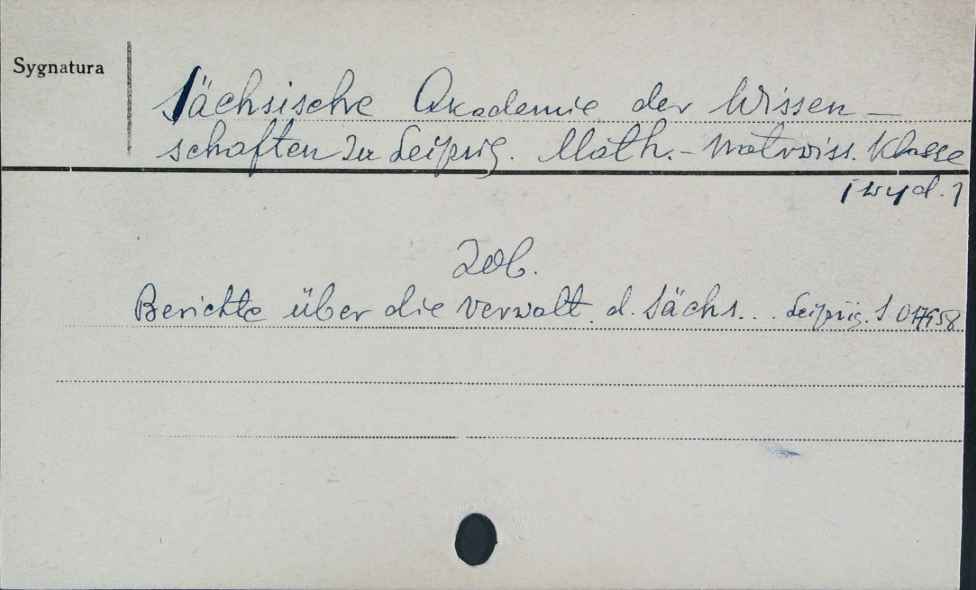 Sygnatura
Sächsische Akademie der Wissen-
schaften zu Leipzig. Math.-natwiss. Klasse
[wyd.]
Zob.
Berichte über die Verwalt. d. Sächs... Leipzig. S 017958